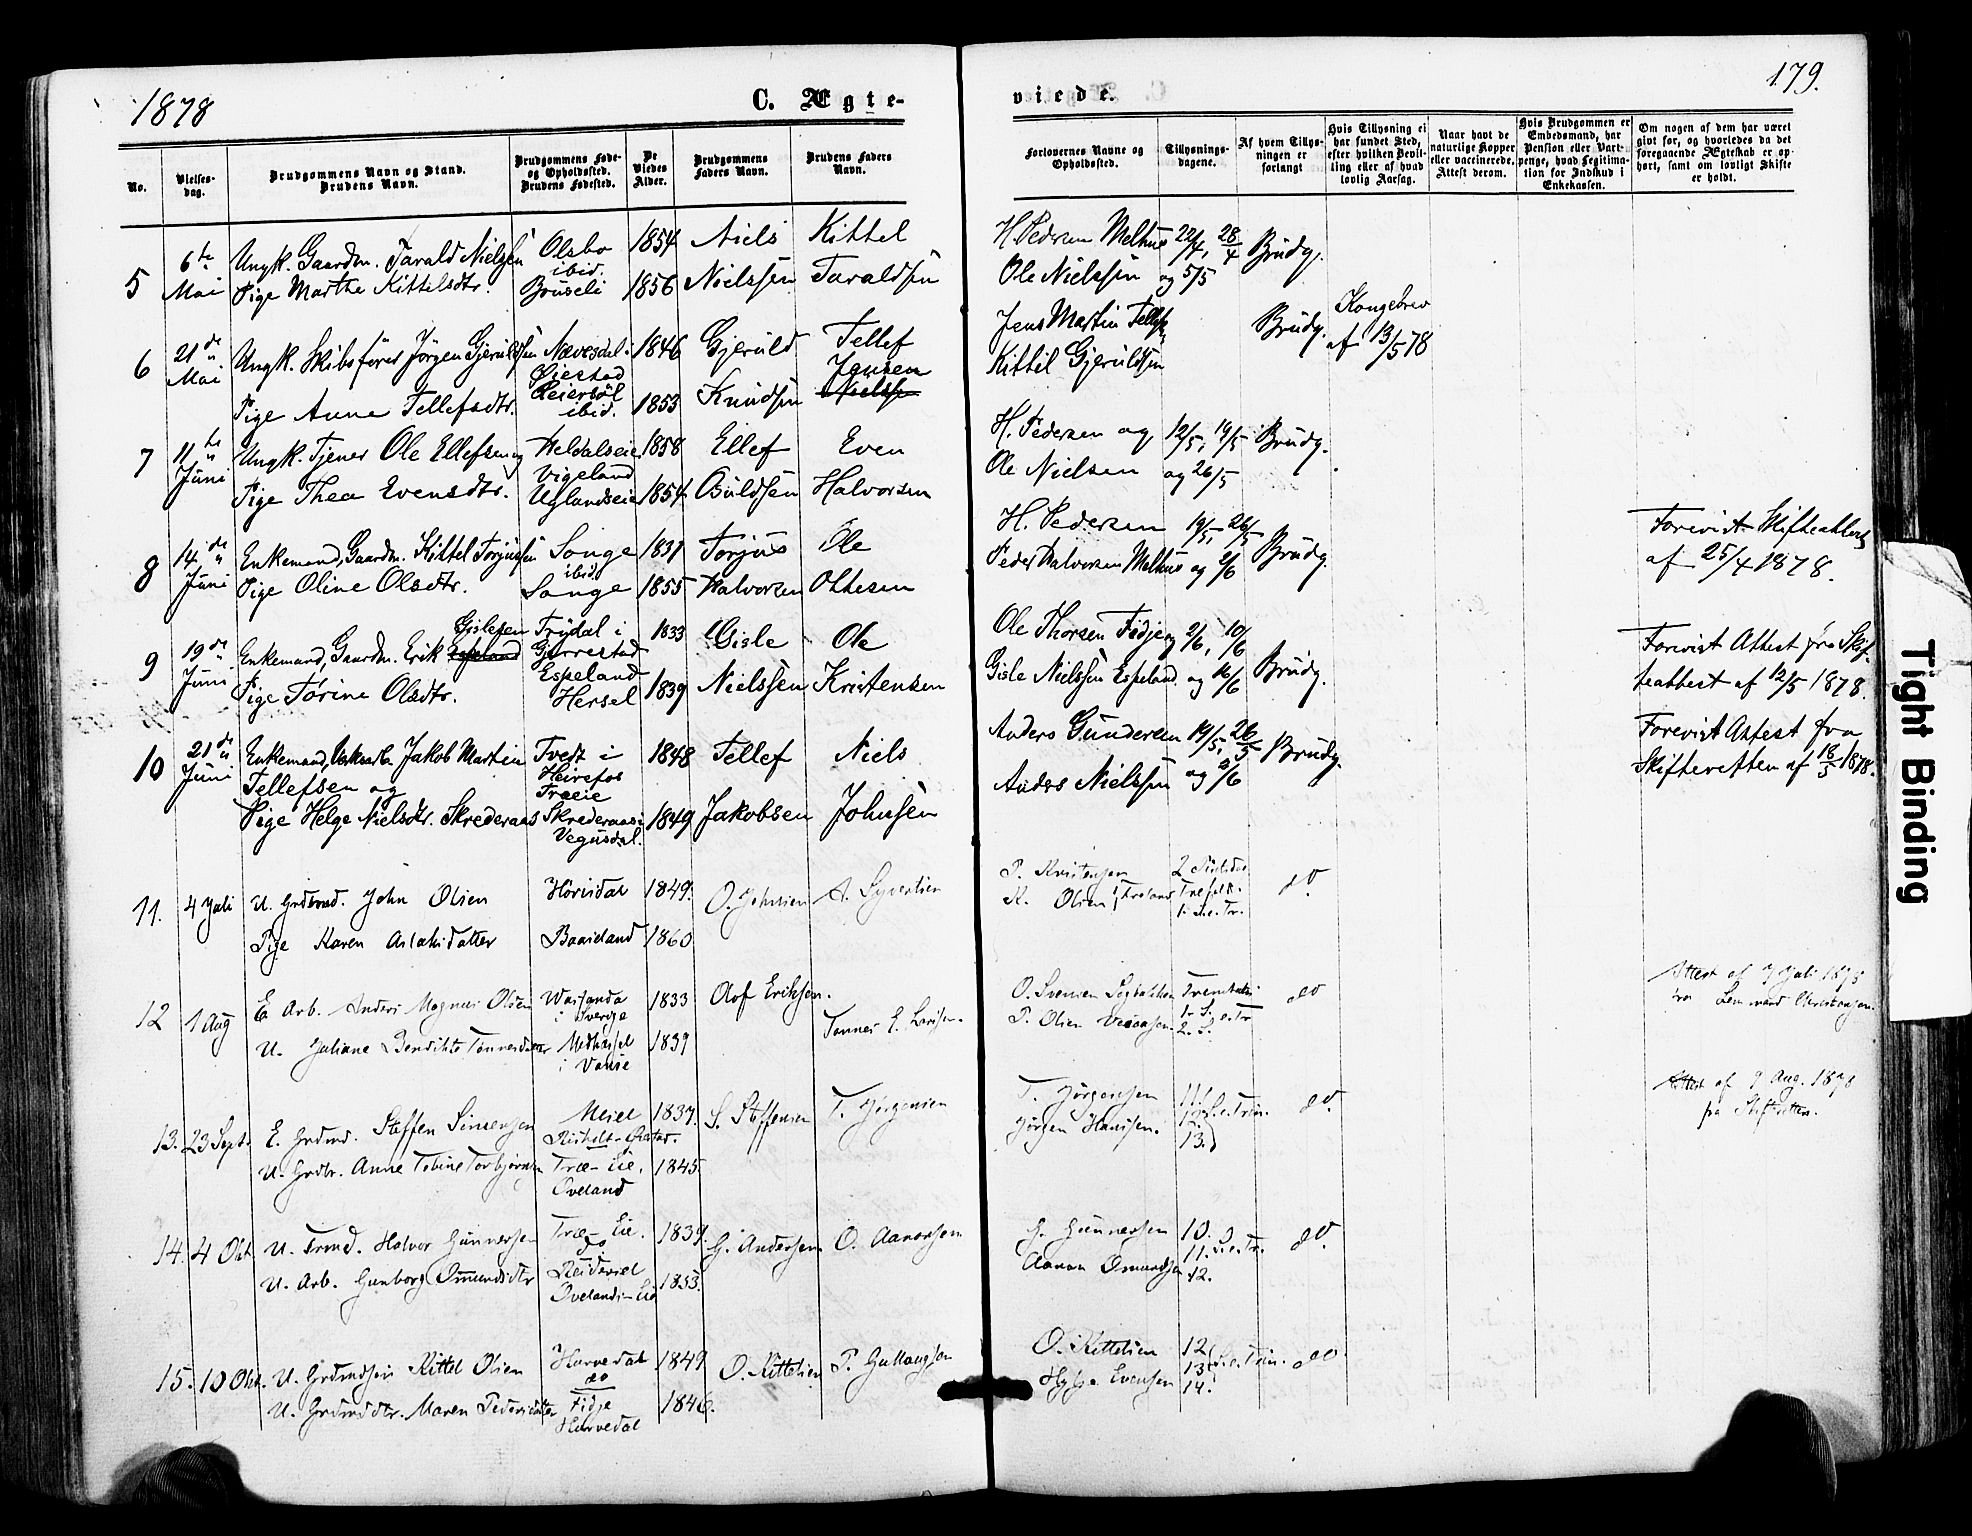 1878
C. Ægte-
viede.
179.
No.
Vielses-
dag.
Brudgommens Navn og Stand.
Brudens Navn.
Brudgommens Føde-
og Opholdssted.
Brudens Fødested.
De
Viedes
Alder.
Brudgommens
Faders Navn.
Brudens Faders
Navn.
Forlovernes Navne og
Opholdssted.
Tillysnings-
dagene.
Af hvem Tillys-
ningen er
forlangt
Hvis Tillysning ei
har fundet Sted,
efter hvilken Bevil-
ling eller af hvad
lovlig Aarsag.
Naar havt de
naturlige Kopper
eller vaccinerede.
Attest derom.
Hvis Brudgommen er
Embedsmand, har
Pension eller Vart-
penge, hvad Legitima-
tion for Indskud i
Enkekassen.
Om nogen af dem har været
gift før, og hvorledes da det
foregaaende Ægteskab er op-
hørt, samt om lovligt Skifte
er holdt.
5 6te Mai Ungk. Gaardm. Tarald Nielsen Olsbo ibid. 1854 Niels Kittel H. Pedersen Melhus 22/4, 28/4 Brudg.
Pige Marthe Kittelsdtr. Bruseli 1856 Nielssen Taraldsen Ole Nielssen og 5/5
6 21de Mai Ungk. Skibsfører Jørgen Gjeruldsen Nævesdal i Øiestad 1846 Gjeruld Tellef Jens Martin Tellefs. Brudg. Kongebrev
af 13/5 78
Pige Anne Tellefsdtr. Reiersøl ibid. 1853 Knudsen Jensen Nielssen Kittil Gjeruldsen
7 11te Juni Ungk. Tjener Ole Ellefsen og Heldalseie Vigeland 1858 Ellef Even H. Pedersen og 12/5, 19/5 Brudg.
Pige Thea Evensdtr. Uglandseie 1854 Osuldsen Halvorsen Ole Nielsen og 26/5
8 14de Juni Enkemand, Gaardm. Kittel Torjussen Songe ibid. 1831 Torjus Ole H. Pedersen 19/5, 26/5 Brudg. Forevist Skifteattest
af 25/4 1878.
Pige Oline Olsdtr. Songe 1855 Halvorsen Ottesen Peder Halvorsen Melhus og 2/6
9 19de Juni Enkemand, Gaardm. Erik Espeland Gislesen Trydal i Gjerrestad 1833 Gisle Ole Ole Thorsen Fidje og 2/6, 10/6 Forevist Attest fra Skif-
teattest af 12/5 1878.
Pige Torine Olsdtr. Espeland Hersel 1839 Nielssen Kristensen Gisle Nielssen Espeland og 16/6 Brudg.
10 21de Juni Enkemand, Jakob Martin Tvedt i Heirefos 1848 Tellef Niels Anders Gundersen 19/5, 26/5 Brudg. Forevist Attest fra
Skifteretten af 18/5 1878.
Tellefsen og Træeie
Pige Helge Nielsdtr. Skrederaas Skrederaas i Vegusdal. 1849 Jakobsen Johnsen Anders Nielssen og 2/6
11. 4 Juli U. Grdbrd. John Olsen Hørisdal 1849. O. Johnsen A. Syvertsen P. Kristensen do
Pige Karen Aslaksdatter Baaseland 1860 K. Olsen 1. S. e. Tr.
12 1 Aug E. Arb. Anders Magnus Olsen i Sverge 1833 Aof Eriksen. O. Svensen do Attest af 7 Juli 1875
U. Juliane Bendikte Tønnesdatter i Vanse 1839 Tønnes E. Larsen. P. Olsen 1. S. e. Tr. 2. S.
13. 23 Sept. E. Grdmd. Steffen Simensen 1837. S. Steffensen T. Jørgensen T. Jørgensen 11. 12. 13. S. e. Trin. do. Attest af 9 Aug. 1878
fra Skifteretten.
U. Grdtr. Anne Tobine Torbjørnsen Træ-Eie. Oveland 1845. Jørgen Hansen.
14. 4 Okt. U. Trmd. Halvor Gunnersen Træ-Eie. do 1839. G. Andersen. O. Aanonsen G. Gunnersen 10. 11. 12. S. e. Tr. do.
U. Arb. Gunborg Omundsdtr Ovelands-Eie 1853. Aanon Omundsen
15. 10 Okt. U. Grdmdsøn Kittel Olsen Hørvedal do 1849 O. Kittelsen P. Gullaugson O. Kittelsen 12. 13. 14. S. e. Trin. do
U. Grdmddtr. Maren Pedersdatter Fidje Hørvedal 1846. Evensen
Tight Binding